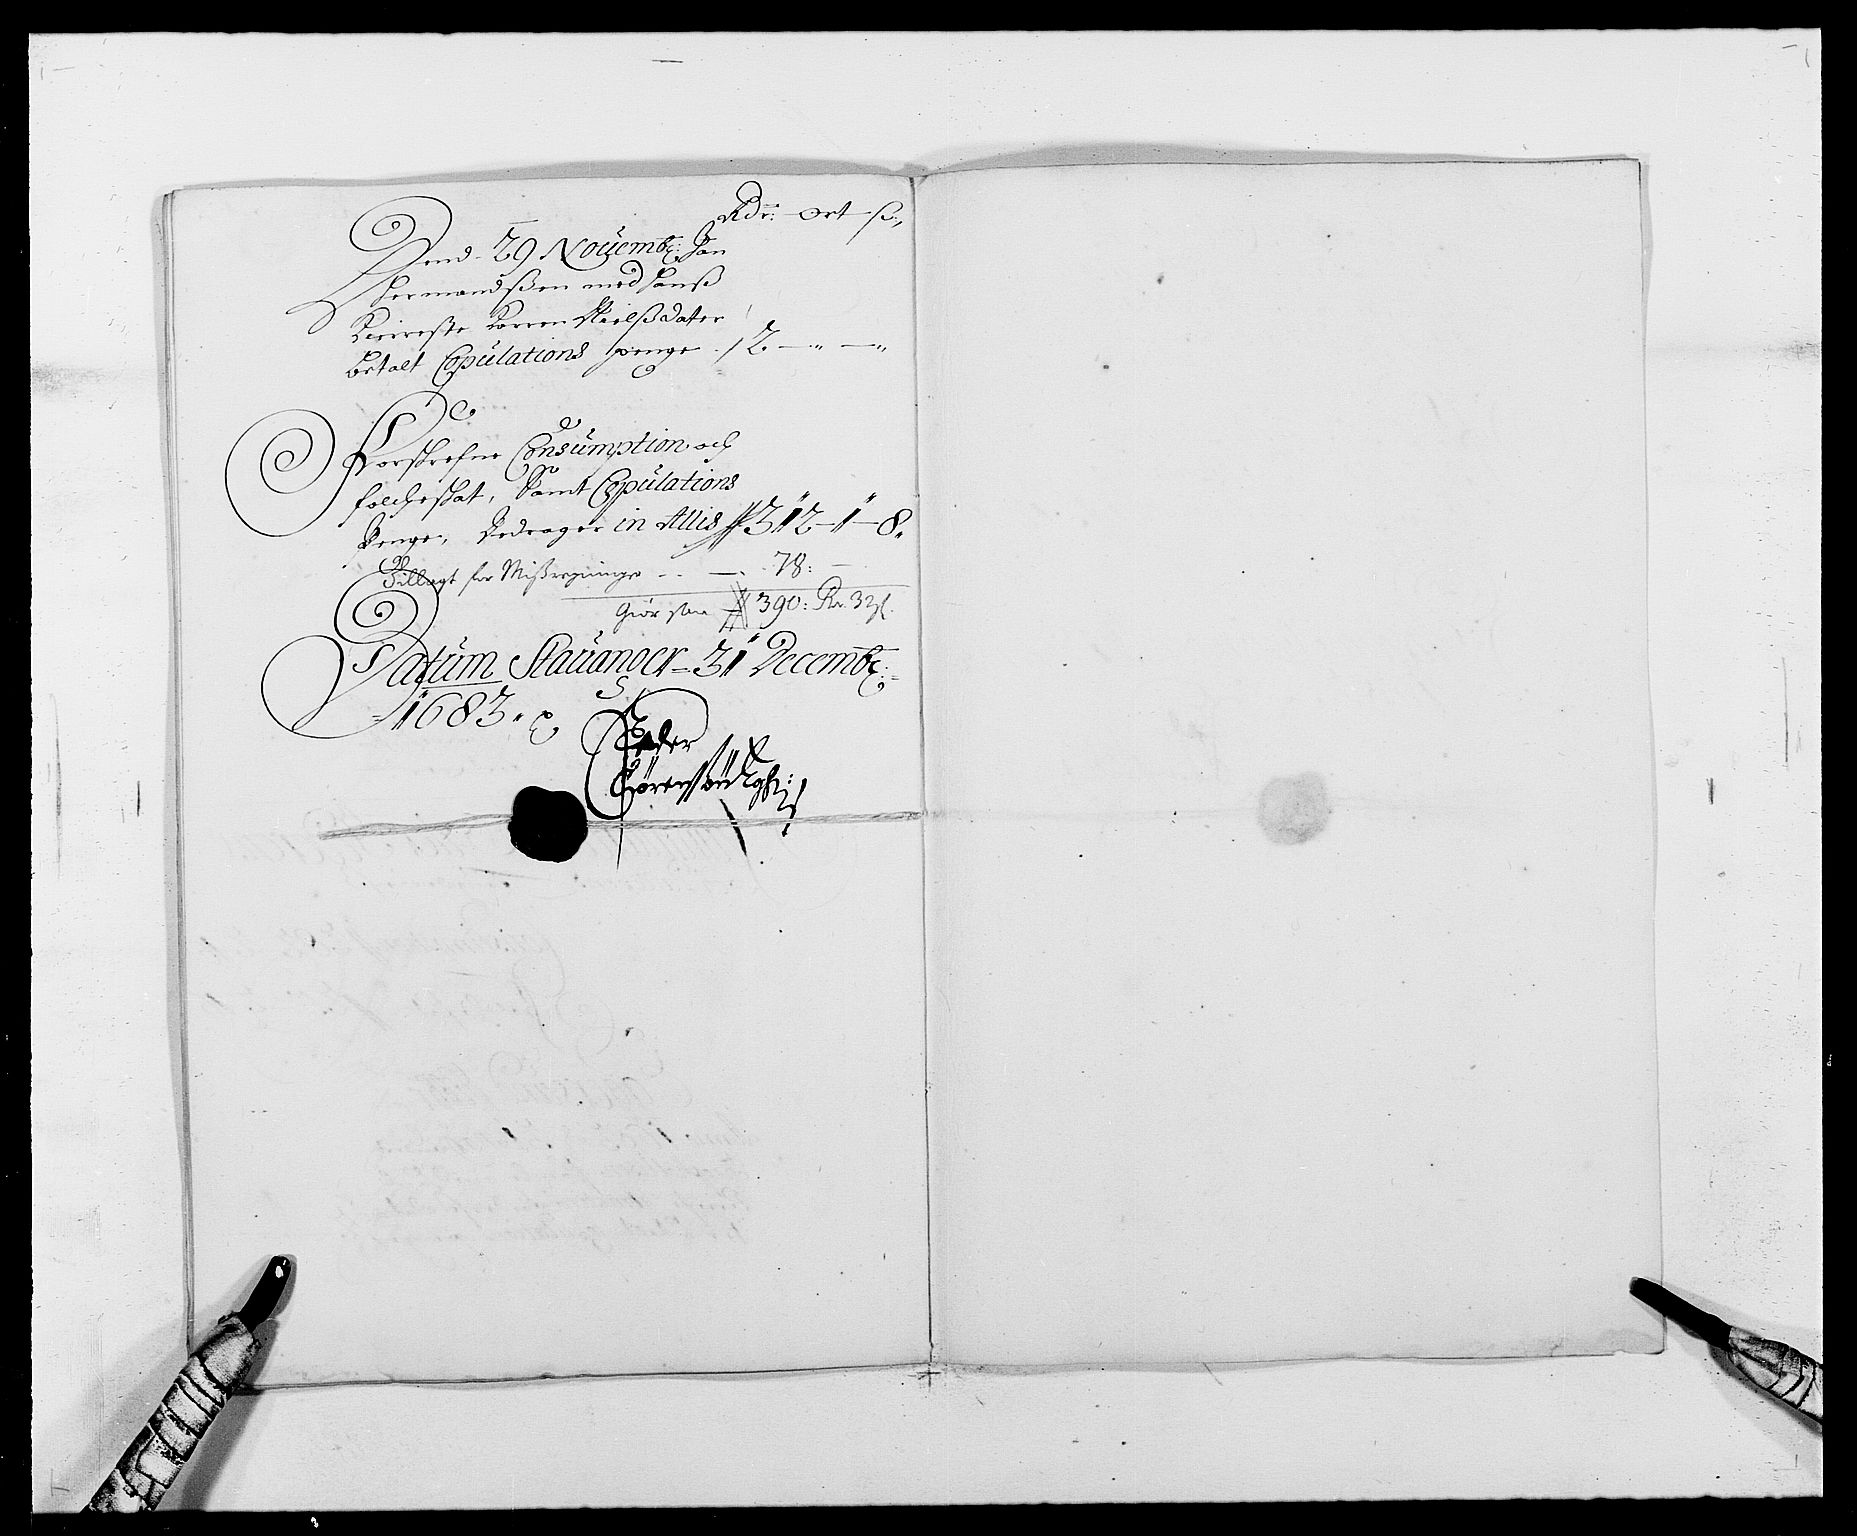 Rdr: ort ß,
Dend 29 Novemb: Jan
Hermandßen med hanß
Kierreste Karren Nielßdater
betalt Copulations penge 2 — " — "
Forskrefne Consumption och
folcheskat, Samt Copulations
Penge, Bedrager in Allis 312 — 1 — 8.
Tillagt for Mißregninge - - — 78: —
Giør som 390: Rd. 32 s.
Datum Stauanger = 31 Decemb:
1683.
Peder